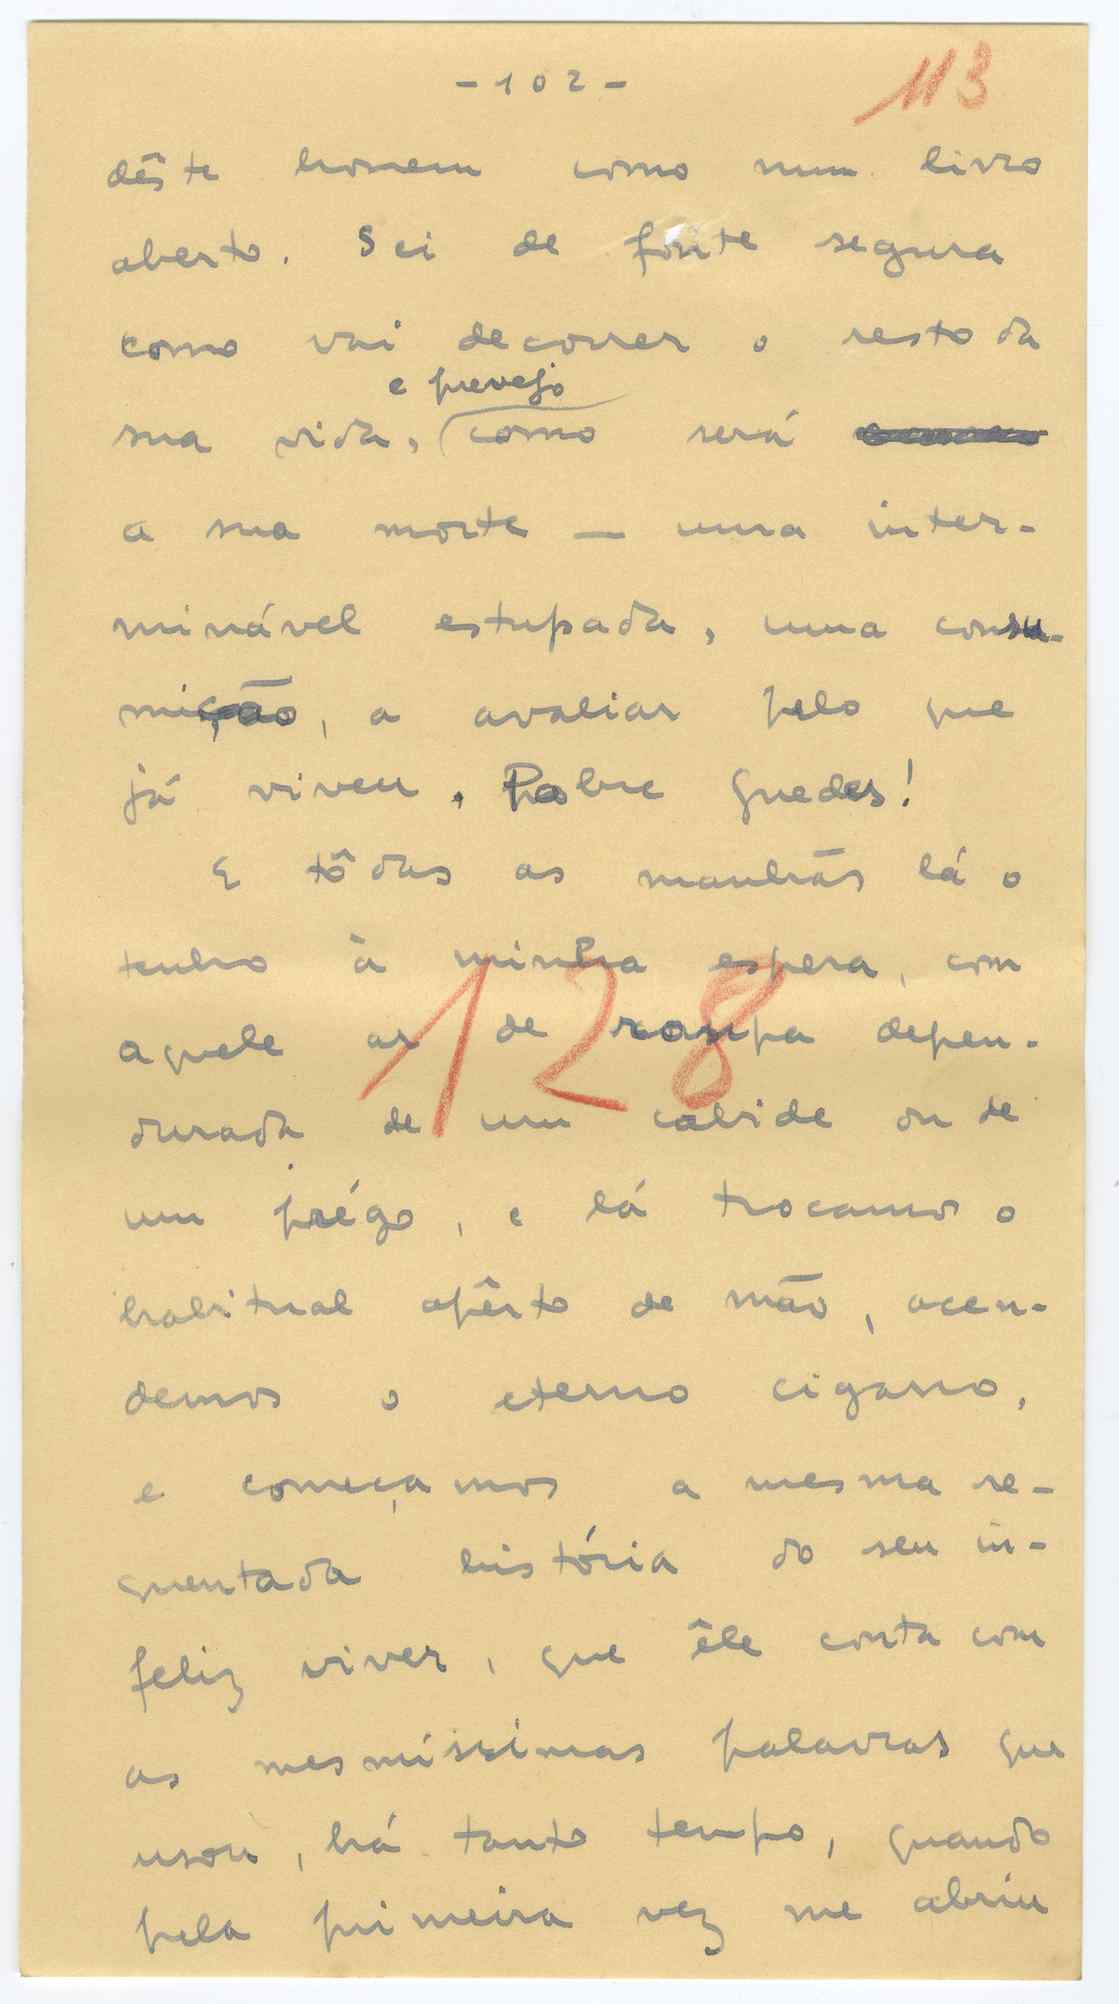 - 102 -
113
dêste homem como num livro
aberto. Sei de fonte segura
como vai decorrer o resto da
e prevejo
sua vida, como será
a sua morte — uma inter-
minável estupada, uma consu-
mição, a avaliar pelo que
já viveu. Pobre Guedes!
E tôdas as manhãs lá o
tenho à minha espera, com
aquele ar de roupa depen-
durada de um cabide ou de
um prégo, e lá trocamos o
habitual apêrto de mão, acen-
demos o eterno cigarro,
e começamos a mesma re-
quentada história do seu in-
feliz viver, que êle conta com
as mesmíssimas palavras que
usou, há tanto tempo, quando
pela primeira vez me abriu
128